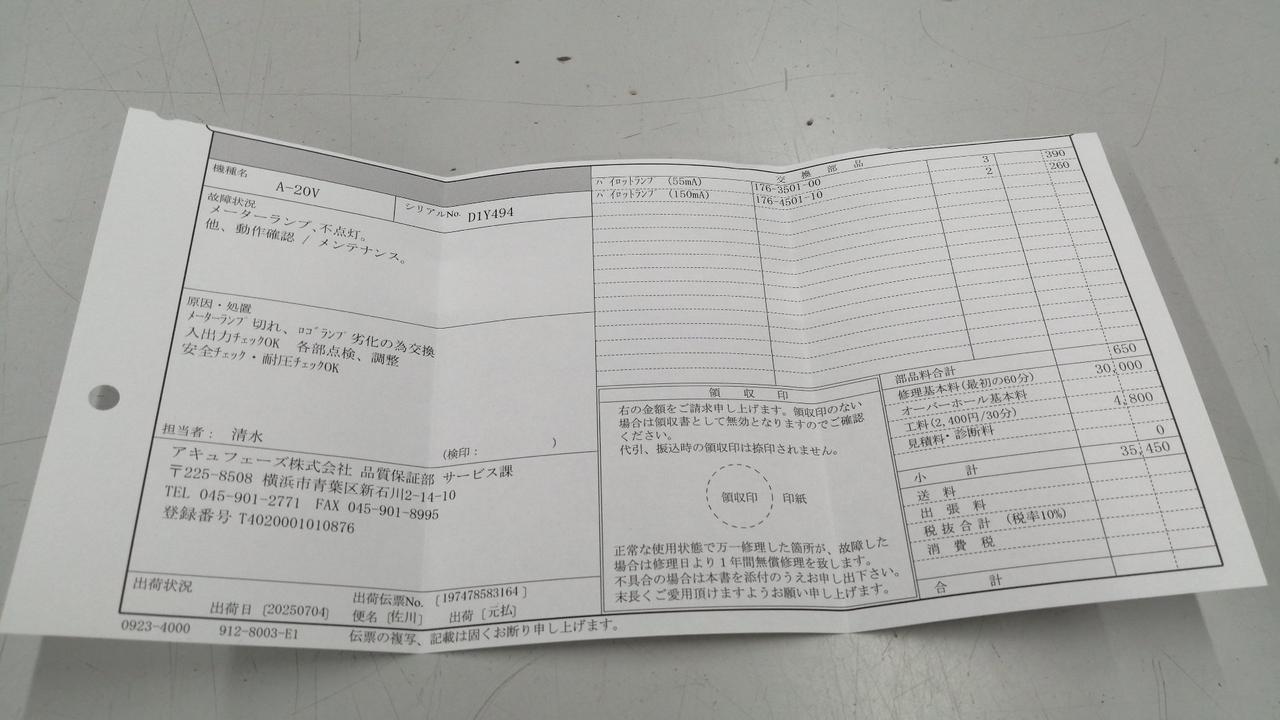 機種名
A-20V
シリアルNo. D1Y494
故障状況
メーターランプ、不点灯。
他、動作確認 / メンテナンス。
原因・処置
ﾒｰﾀｰﾗﾝﾌﾟ切れ、ﾛｺﾞﾗﾝﾌﾟ劣化の為交換
入出力ﾁｪｯｸOK 各部点検、調整
安全ﾁｪｯｸ・耐圧ﾁｪｯｸOK
担当者： 清水
(検印： )
アキュフェーズ株式会社 品質保証部 サービス課
〒225-8508 横浜市青葉区新石川2-14-10
TEL 045-901-2771 FAX 045-901-8995
登録番号 T4020001010876
出荷状況
出荷伝票No. [197478583164]
出荷日 [20250704] 便名 [佐川] 出荷 [元払]
0923-4000 912-8003-E1 伝票の複写、記載は固くお断り申し上げます。
交換部品
ﾊﾟｲﾛｯﾄﾗﾝﾌﾟ (55mA) 176-3501-00 3 390
ﾊﾟｲﾛｯﾄﾗﾝﾌﾟ (150mA) 176-4501-10 2 260
領収印
右の金額をご請求申し上げます。領収印のない
場合は領収書として無効となりますのでご確認
ください。
代引、振込時の領収印は捺印されません。
領収印 印紙
正常な使用状態で万一修理した箇所が、故障した
場合は修理日より１年間無償修理を致します。
不具合の場合は本書を添付のうえお申し出下さい。
末長くご愛用頂けますようお願い申し上げます。
部品料合計 650
修理基本料(最初の60分) 30,000
オーバーホール基本料
工料(2,400円/30分) 4,800
見積料・診断料 0
小計 35,450
送料
出張料
税抜合計 (税率10%)
消費税
合計